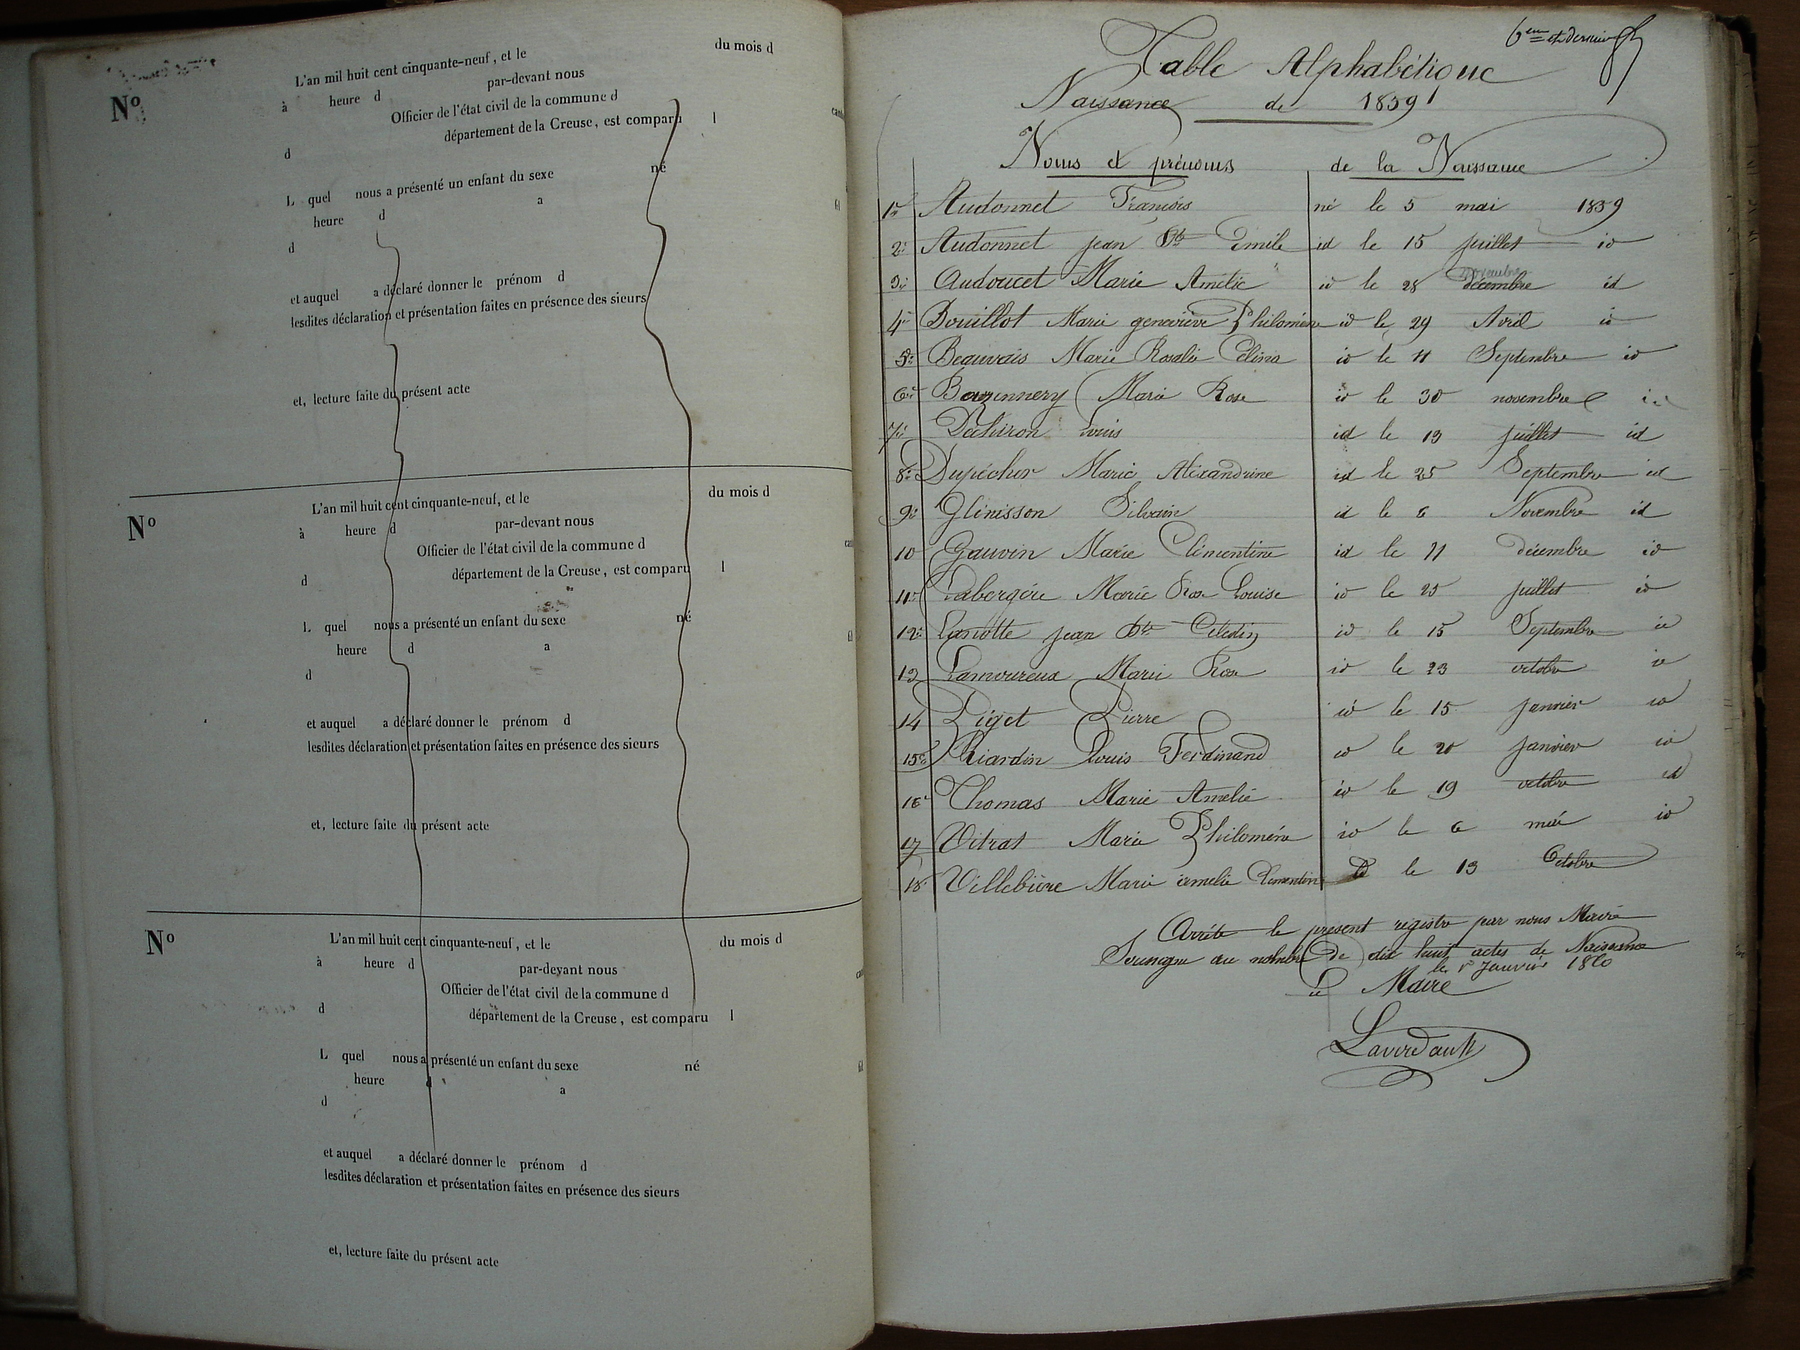 du mois d
L'an mil huit cent cinquante-neuf, et le
Nº
à heure d par-devant nous
Officier de l'état civil de la commune d
département de la Creuse, est comparu l
d
L quel nous a présenté un enfant du sexe né
heure d a
d
et auquel a déclaré donner le prénom d
lesdites déclaration et présentation faites en présence des sieurs
et, lecture faite du présent acte
du mois d
L'an mil huit cent cinquante-neuf, et le
Nº
à heure d par-devant nous
Officier de l'état civil de la commune d
département de la Creuse, est comparu l
d
L quel nous a présenté un enfant du sexe né
heure d a
d
et auquel a déclaré donner le prénom d
lesdites déclaration et présentation faites en présence des sieurs
et, lecture faite du présent acte
Nº
L'an mil huit cent cinquante-neuf, et le du mois d
à heure d par-devant nous
Officier de l'état civil de la commune d
d département de la Creuse, est comparu l
L quel nous a présenté un enfant du sexe né
heure d a
d
et auquel a déclaré donner le prénom d
lesdites déclaration et présentation faites en présence des sieurs
et, lecture faite du présent acte
6em et dernier
Table Alphabétique
Naissance de 1859
Noms et prénoms de la Naissance
1º Audonnet François né le 5 mai 1859
2º Audonnet jean Bte Emile id le 15 juillet id
novembre
3º Audoucet Marie Amélie id le 28 décembre id
4º Bouillot Marie geneviève Philomène id le 29 Avril id
5º Beauvais Marie Rosalie Célina id le 11 Septembre id
6º Marie Rose id le 30 novembre id
7º Déchiron Louis id le 13 juillet id
8º Dupêcher Marie Alexandrine id le 25 Septembre id
9º Glénisson Silvain id le 6 Novembre id
10 Gauvin Marie Clémentine id le 11 décembre id
11º Labergère Marie Rose Louise id le 25 juillet id
12º Lariotte jean Bte Célestin id le 15 Septembre id
13 Lamoureux Marie Rose id le 23 octobre id
14 Piget Pierre id le 15 janvier id
15º Riardin Louis Ferdinand id le 20 janvier id
16º Thomas Marie Amélie id le 19 octobre id
17 Vitrat Marie Philomène id le 6 mai id
18 Villebière Marie amélie Clémentine id le 13 Octobre
Arrêté le présent registre par nous Maire
au nombre de dix huit actes de Naissance
le 1er Janvier 1860
Le Maire
Laverdault